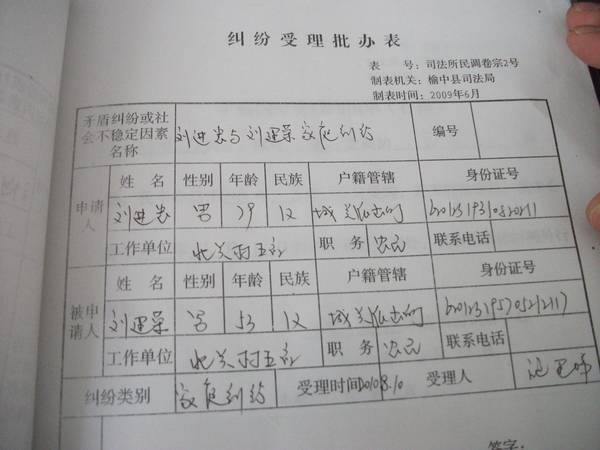 纠纷受理批办表
表 号：司法所民调卷宗2号
制表机关：榆中县司法局
制表时间：2009年6月
矛盾纠纷或社会不稳定因素名称 刘进忠与刘建荣家庭纠纷 编号
申请人 姓 名 性别 年龄 民族 户籍管辖 身份证号
刘进忠 男 79 汉 城关派出所
工作单位 北关村五社 职 务 农民 联系电话
被申请人 姓 名 性别 年龄 民族 户籍管辖 身份证号
刘建荣 男 53 汉 城关派出所
工作单位 北关村五社 职 务 农民 联系电话
纠纷类别 家庭纠纷 受理时间 2010.8.10 受理人
签字：